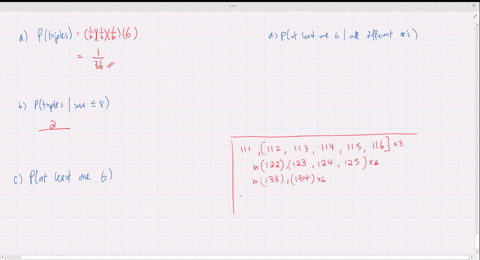 a) P(triples) = (1/6)(1/6)(1/6)(6)
= 1/36
b) P(triples | sum ≤ 8)
2
c) P(at least one 6)
d) P(at least one 6 | all different #'s)
111, [112, 113, 114, 115, 116] ×3
3×(122), (123, 124, 125) ×6
3×(133), (134) ×6